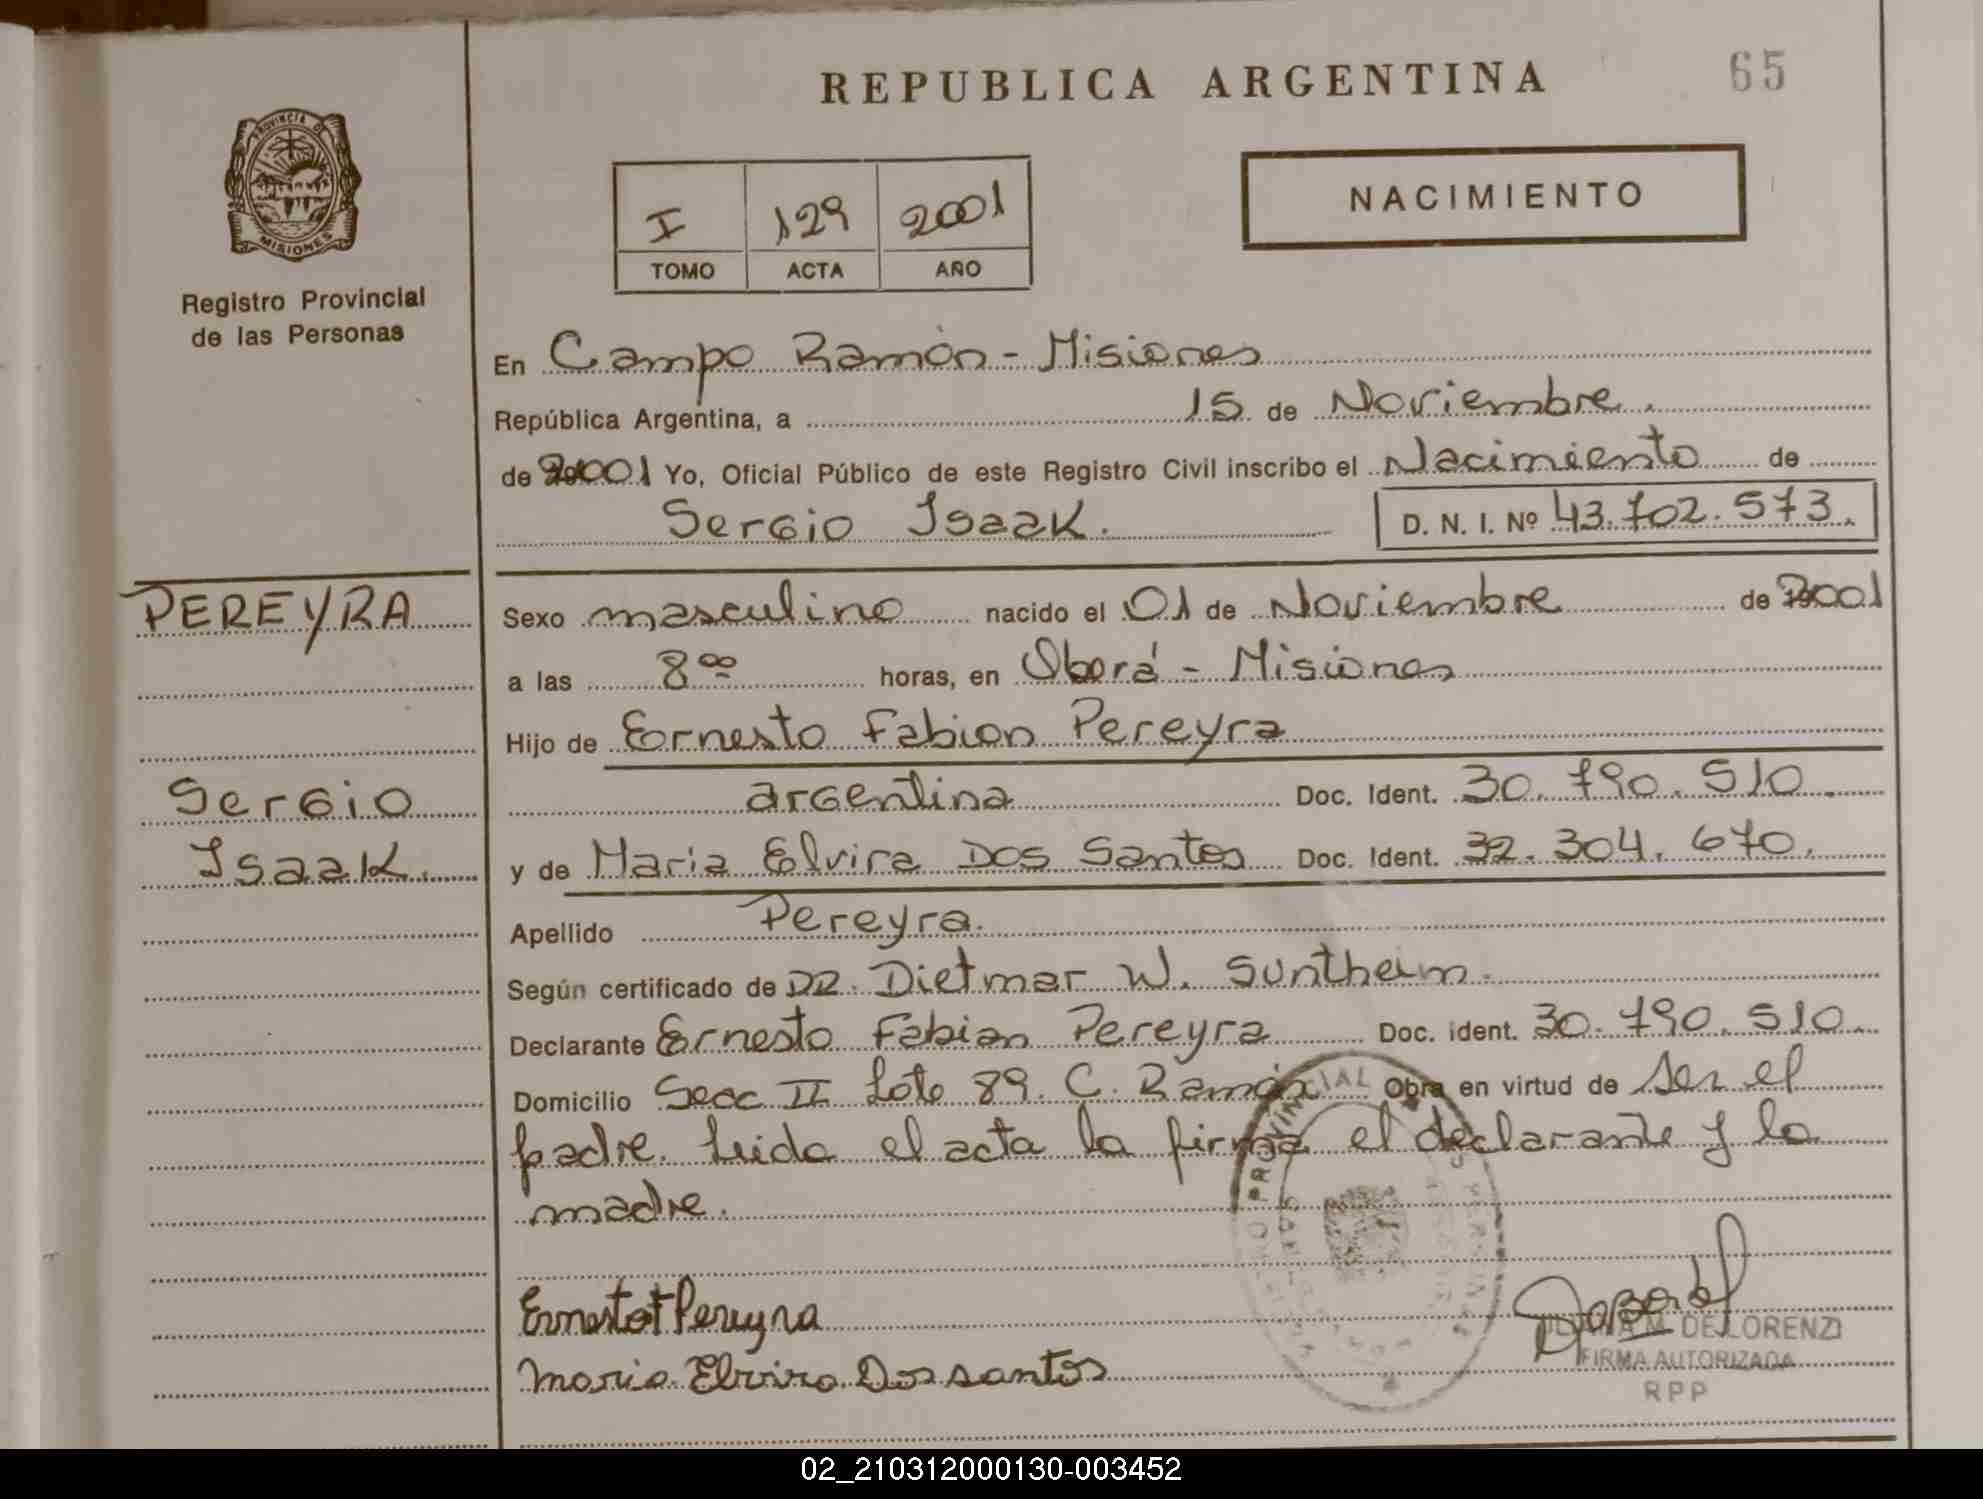 REPUBLICA ARGENTINA
65
PROVINCIA DE
MISIONES
Registro Provincial
de las Personas
I 129 2001
TOMO ACTA AÑO
NACIMIENTO
En Campo Ramón - Misiones
República Argentina, a 15 de Noviembre.
de 2001 Yo, Oficial Público de este Registro Civil inscribo el Nacimiento de
Sergio Isaak. D. N. I. Nº 43.702.573.
PEREYRA
Sergio
Isaak.
Sexo masculino nacido el 01 de Noviembre de 2001
a las 8⁰⁰ horas, en Oberá - Misiones
Hijo de Ernesto Fabian Pereyra
argentina Doc. Ident. 30.790.510.
y de Maria Elvira Dos Santos Doc. Ident. 32.304.670.
Apellido Pereyra.
Según certificado de DR. Dietmar W. Suntheim.
Declarante Ernesto Fabian Pereyra Doc. ident. 30.790.510.
Domicilio Secc II Lote 89. C. Ramón Obra en virtud de ser el
padre. Leida el acta la firma el declarante y la
madre.
PROVINCIAL
Ernesto F Pereyra
Maria Elvira Dos santos
M. DE LORENZI
FIRMA AUTORIZADA
RPP
02_210312000130-003452